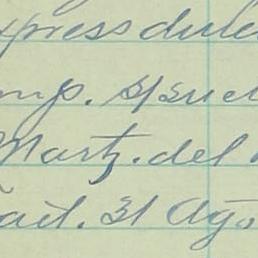 xpress dule
mp. s/ sue
Martz. del
ail. 31 Ago